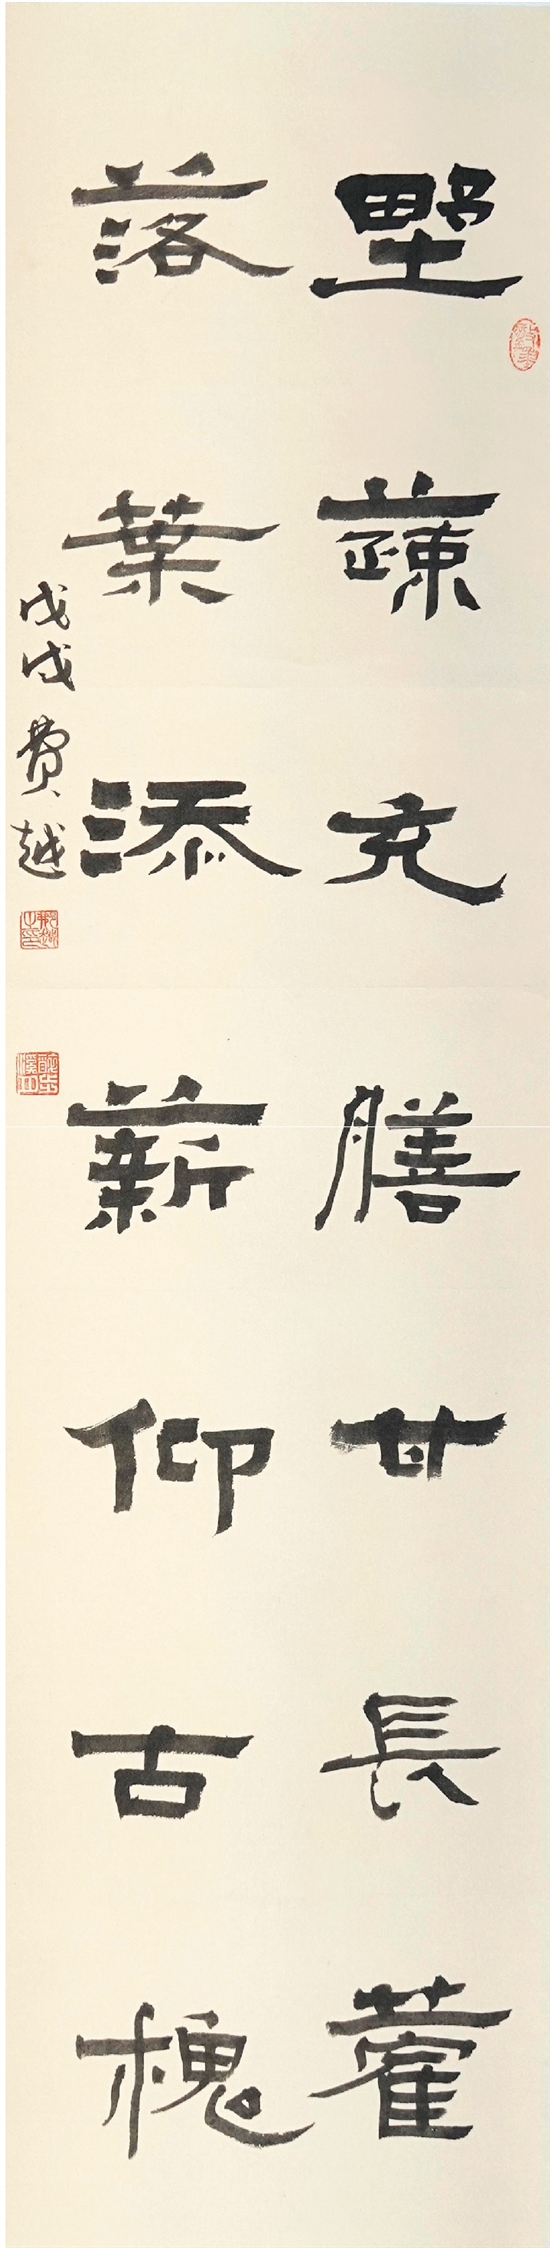 野蔬充膳甘長藿
落葉添薪仰古槐
戊戌費越